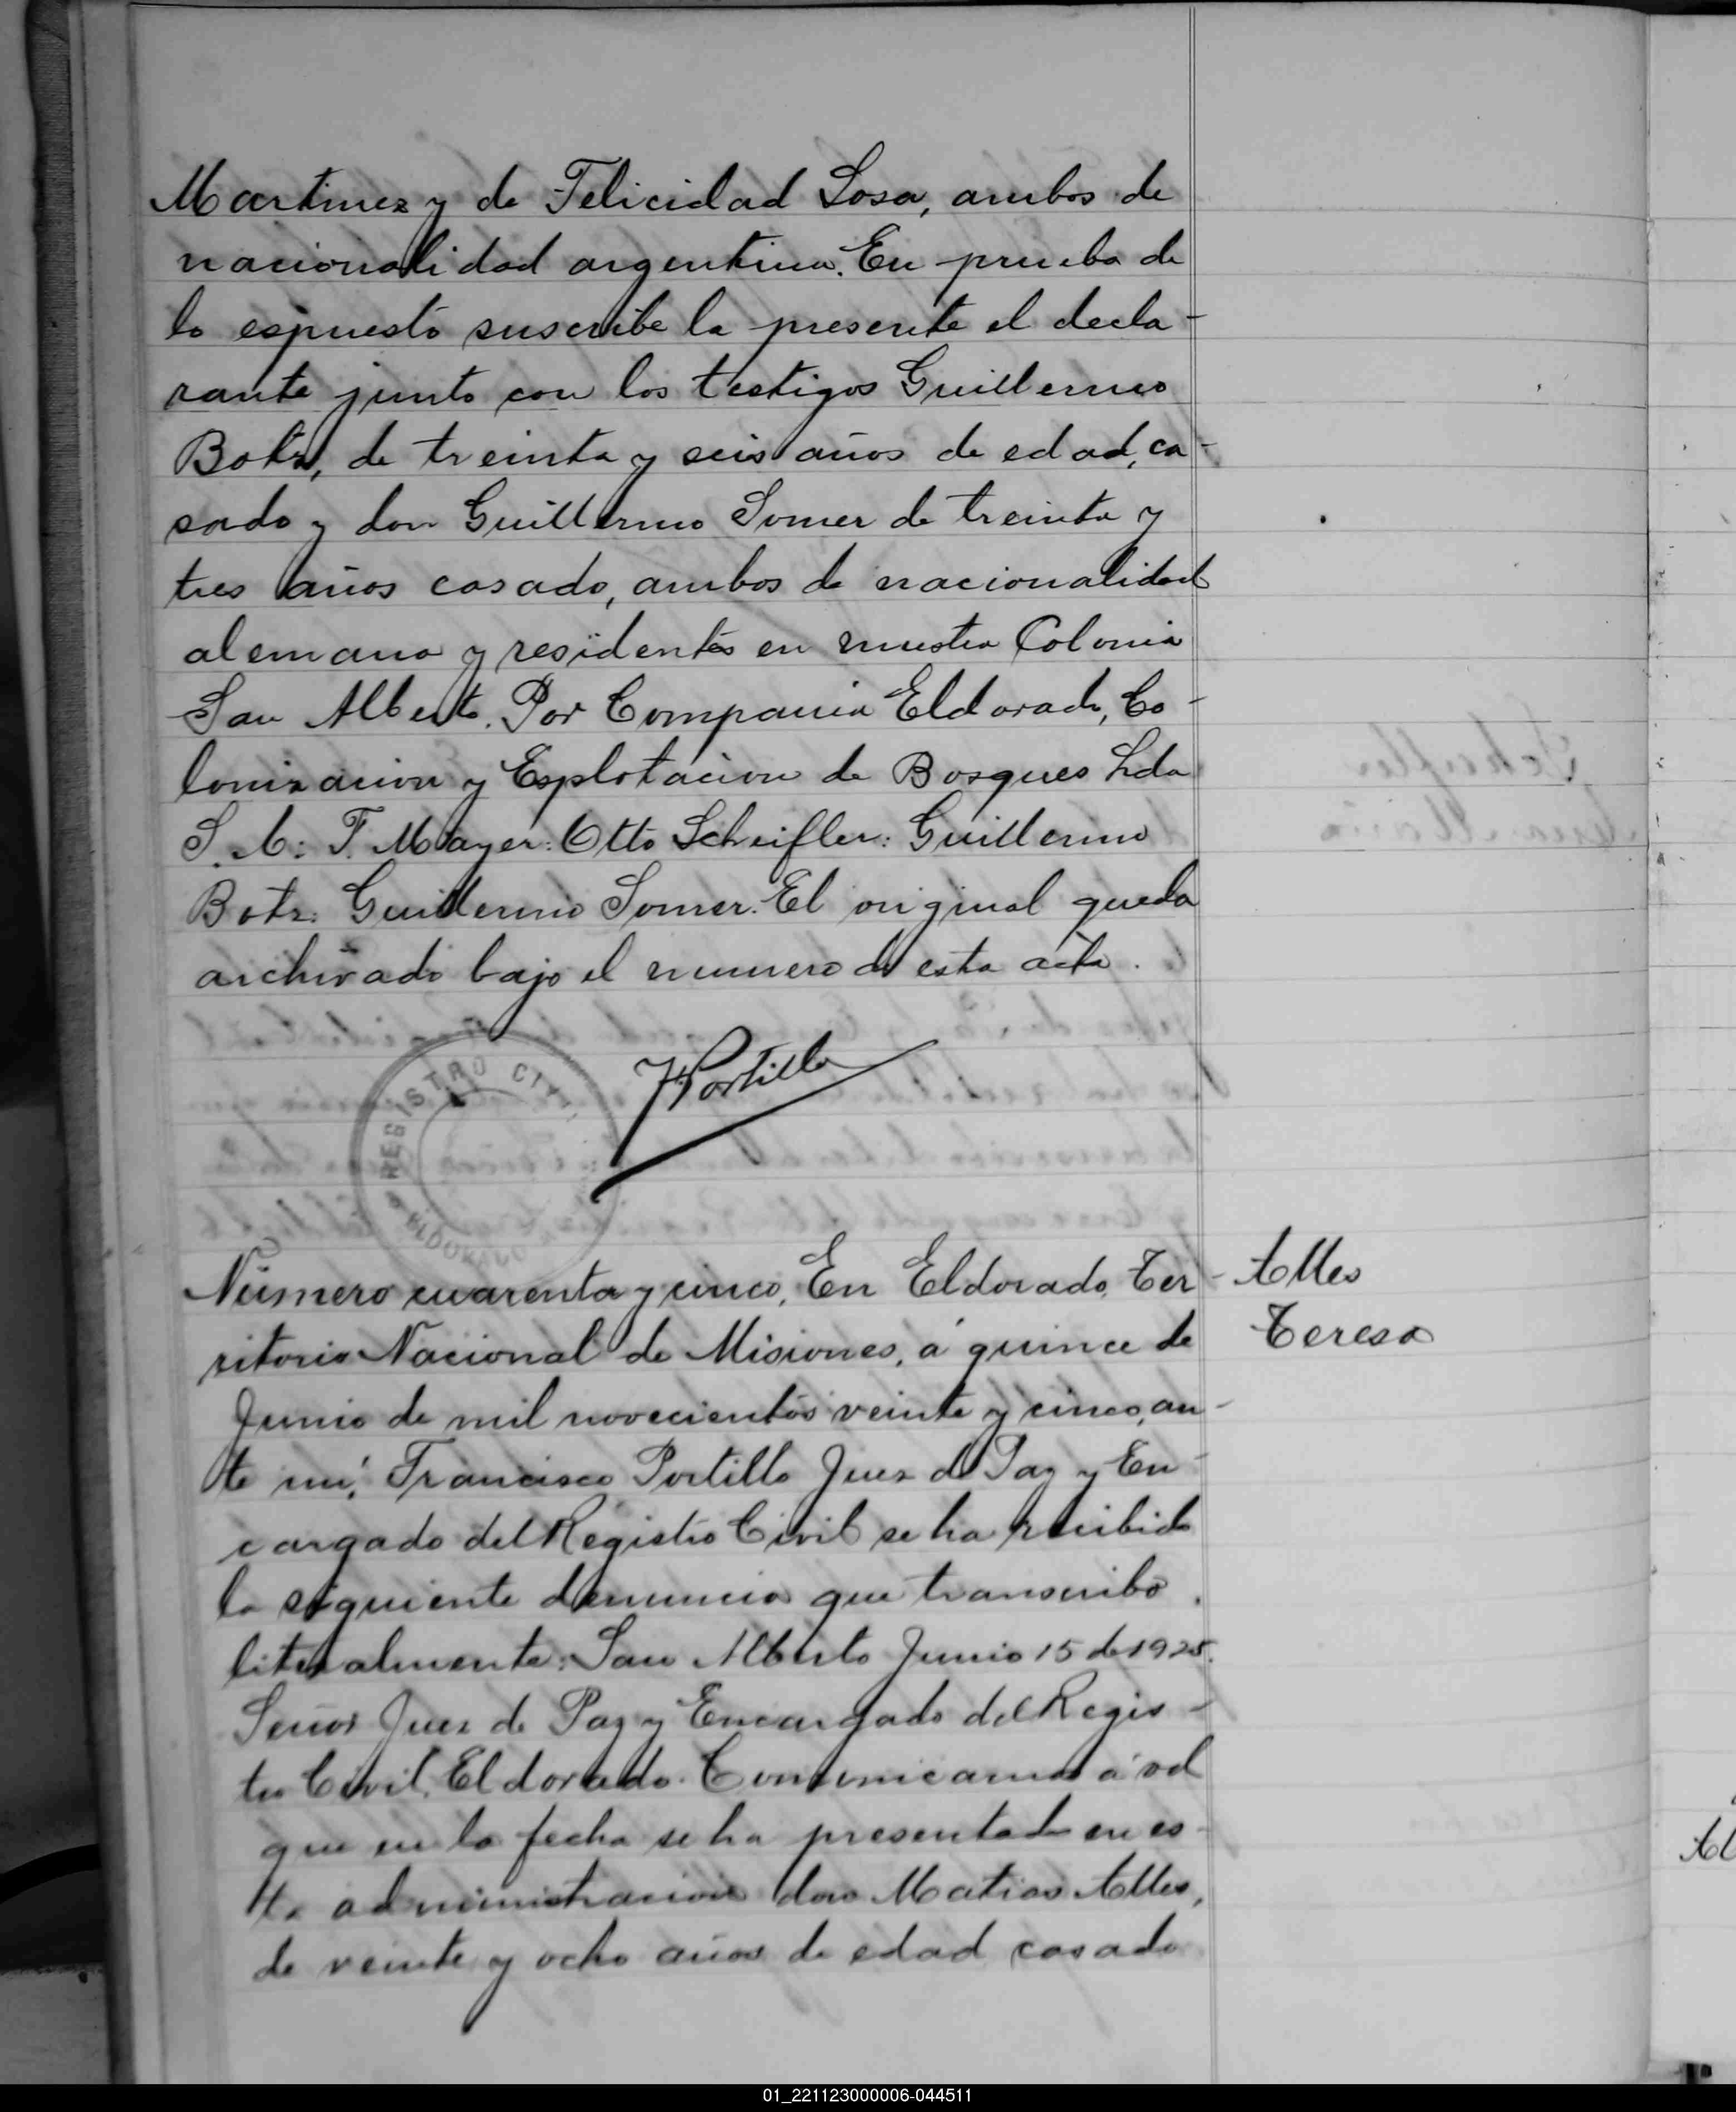 Martinez y de Felicidad Sosa, ambos de
nacionalidad argentina. En prueba de
lo espuesto suscribe la presente el decla-
rante junto con los testigos Guillermo
Botz, de treinta y seis años de edad, ca-
sado y don Guillermo Somer de treinta y
tres años casado, ambos de nacionalidad
alemana y residentes en nuestra Colonia
San Alberto. Por Compania Eldorado, Co-
lonizacion y Esplotacion de Bosques Lda
S. A: F. Mayer: Otto Scheifler: Guillermo
Botz: Guillermo Somer. El original queda
archivado bajo el numero de esta acta.
REGISTRO CIVIL
ELDORADO
FPortillo
Número cuarenta y cinco, En Eldorado, Ter-
ritorio Nacional de Misiones, á quince de
Junio de mil novecientos veinte y cinco, an-
te mi, Francisco Portillo Juez de Paz y En-
cargado del Registro Civil se ha recibido
la siguiente denuncia que transcribo
literalmente: San Alberto Junio 15 de 1925.
Señor Juez de Paz y Encargado del Regis-
tro Civil. Eldorado. Comunicamos á vd
que en la fecha se ha presentado en es-
ta administracion don Matias Alles,
de veinte y ocho años de edad casado
Alles
Teresa
Al
01_221123000006-044511